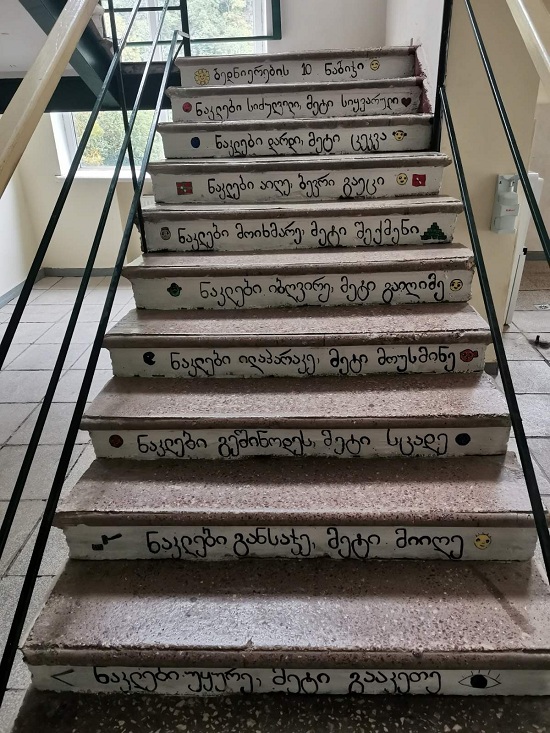 ბედნიერების 10 ნაბიჯი
ნაკლები სიძულვილი, მეტი სიყვარული
ნაკლები დარდი, მეტი ცეკვა
ნაკლები აიღე, ბევრი გაეცი
ნაკლები მოიხმარე, მეტი შექმენი
ნაკლები იბღვირე, მეტი გაიღიმე
ნაკლები ილაპარაკე, მეტი მოუსმინე
ნაკლები გეშინოდეს, მეტი სცადე
ნაკლები განსაჯე, მეტი მიიღე
ნაკლები უყურე, მეტი გააკეთე